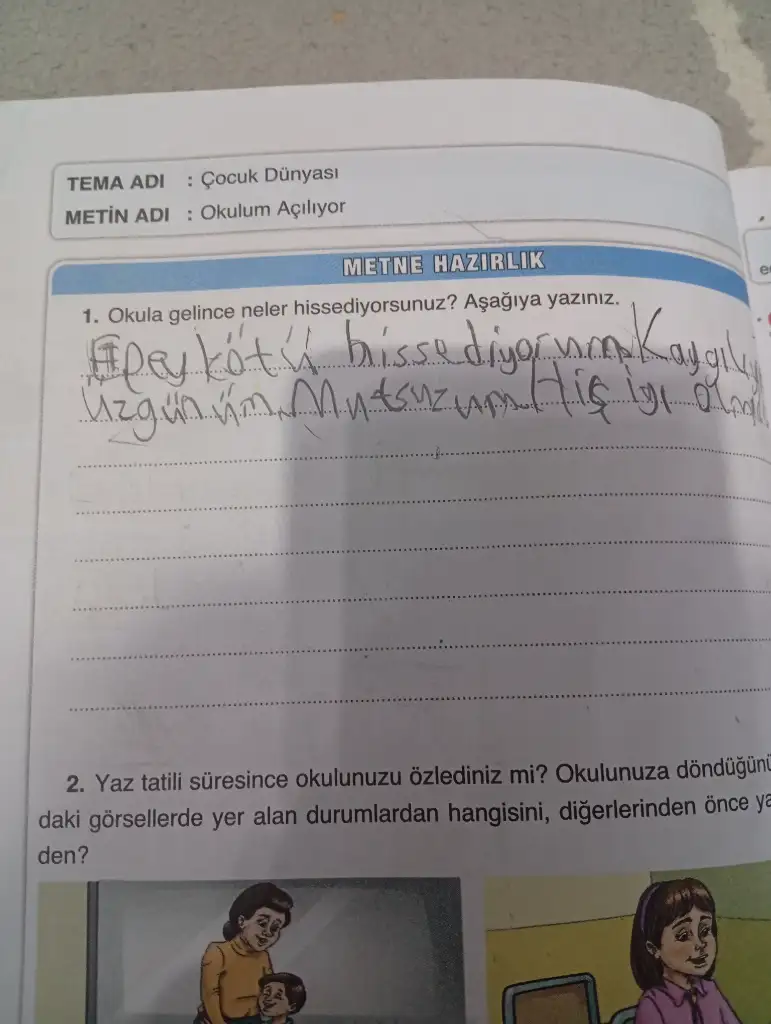 TEMA ADI : Çocuk Dünyası
METİN ADI : Okulum Açılıyor
METNE HAZIRLIK
1. Okula gelince neler hissediyorsunuz? Aşağıya yazınız.
Epey kötü hissediyorum Kaygılıy
üzgünüm Mutsuzum Hiç iyi olma
2. Yaz tatili süresince okulunuzu özlediniz mi? Okulunuza döndüğünü
daki görsellerde yer alan durumlardan hangisini, diğerlerinden önce ya
den?